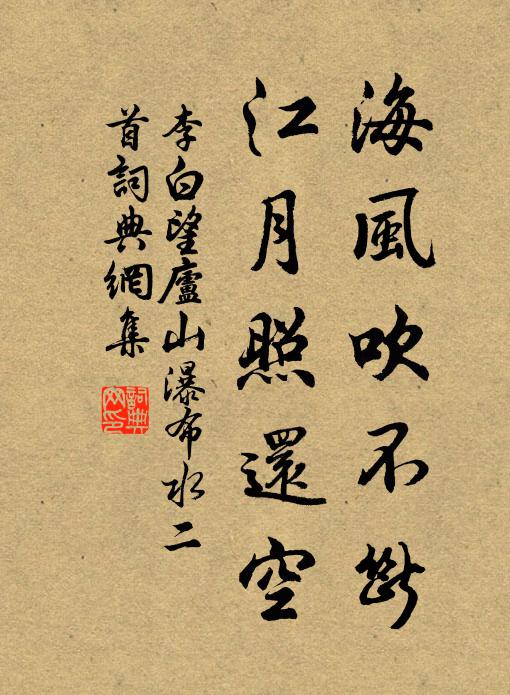 海風吹不斷
江月照還空
李白望廬山瀑布水二
首詞典網集
詞典
网印